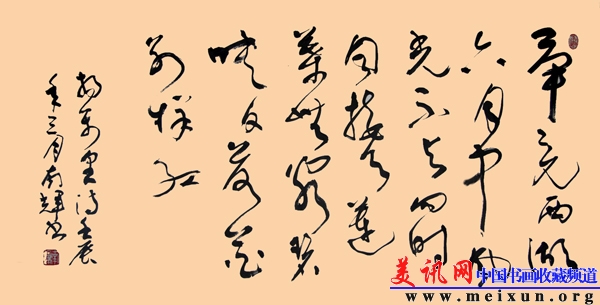 毕竟西湖
六月中风
光不与四时
同接天莲
葉無窮碧
映日荷花
别样红
杨万里诗壬辰
年三月南辉书
美讯网 中国书画收藏频道
www.meixun.org